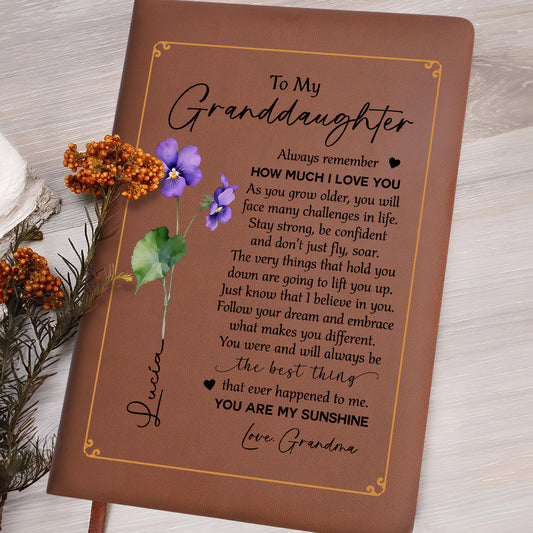 To My
Granddaughter
Always remember
HOW MUCH I LOVE YOU
As you grow older, you will
face many challenges in life.
Stay strong, be confident
and don't just fly, soar.
The very things that hold you
down are going to lift you up.
Just know that I believe in you.
Follow your dream and embrace
what makes you different.
You were and will always be
the best thing
that ever happened to me.
YOU ARE MY SUNSHINE
Love, Grandma
Lucía